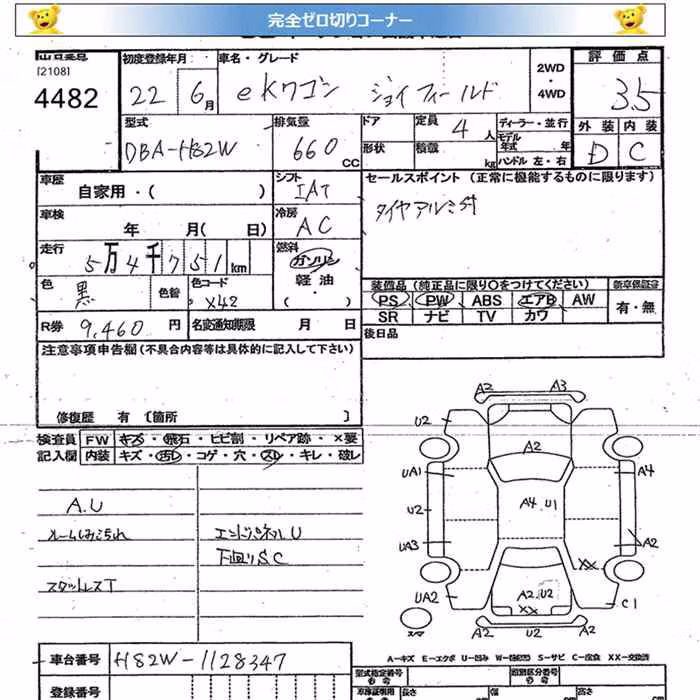 完全ゼロ切りコーナー
[2108]
4482
初度登録年月
22 6月
車名・グレード
eKワゴン ジョイフィールド
2WD
・
4WD
評価点
3.5
外装 内装
D C
型式
DBA-H82W
排気量
660 CC
ドア
形状
定員 4 人
積載 kg
ディーラー・並行
モデル
年式 年
ハンドル 左・右
車歴
自家用・( )
シフト
IAT
セールスポイント (正常に機能するものに限ります)
タイヤアルミ付
車検
年 月( 日)
冷房
AC
走行
5万4千751km
燃料
ガソリン
軽油
・
( )
色
黒
色替
色コード
X42
装備品(純正品に限り○をつけてください)
PS PW ABS エアB AW
SR ナビ TV カワ
新車保証書
有・無
R券 9,460 円
名変通知期限 月 日
後日品
注意事項申告欄(不具合内容等は具体的に記入して下さい)
修復歴 有〔箇所 〕
検査員
記入欄
FW キズ・飛石・ヒビ割・リペア跡・×要
内装 キズ・汚レ・コゲ・穴・スレ・キレ・破レ
A.U
ルームしみよごれ
エンドパネルU
下回りSC
スタットレスT
A2 A3
U2
A2
UA1
A4
A4 U1
U2
UA3
A2
XX
UA2
A2 U2
XX
C1
スペア
A2 U2 A2
車台番号 H82W-1128347
A-キズ E-エクボ U-凹み S-サビ C-腐食 XX-交換済
登録番号
型式指定番号
類別区分番号
長さ 幅 高さ